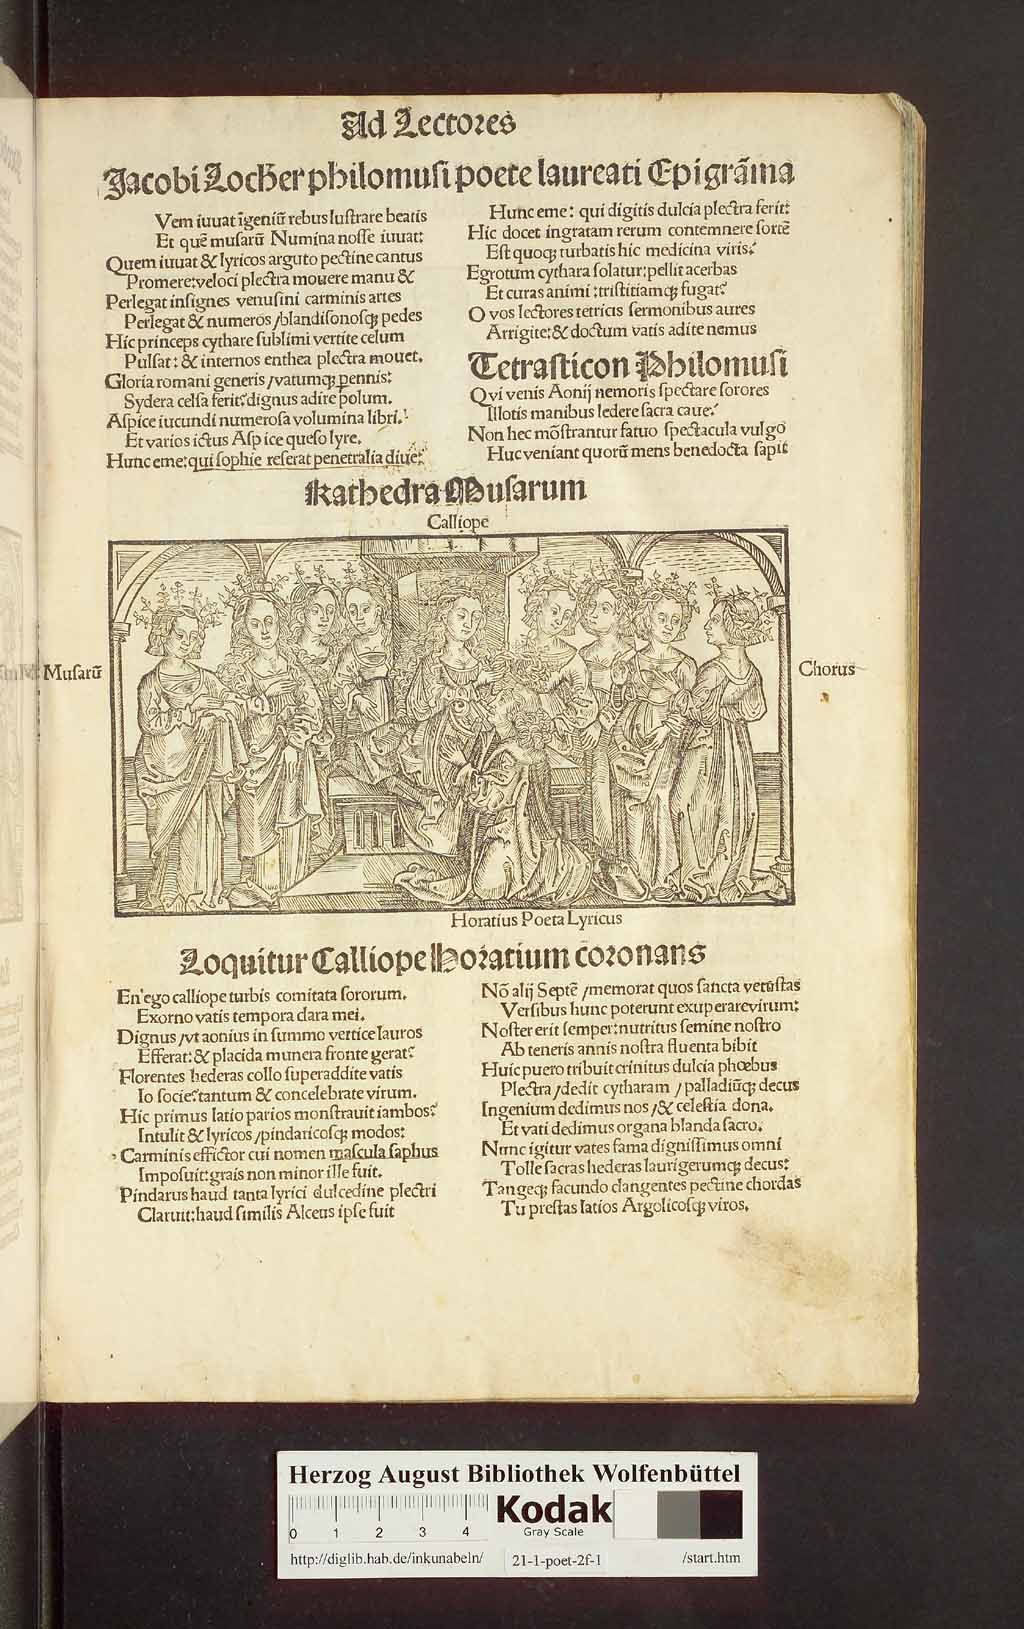 Ad Lectores
Jacobi Locher philomusi poete laureati Epigrãma
Vem iuuat ĩgeniũ rebus lustrare beatis
Et quẽ musarũ Numina nosse iuuat:
Quem iuuat & lyricos arguto pectine cantus
Promere: veloci plectra mouere manu &
Perlegat insignes venusini carminis artes
Perlegat & numeros /blandisonosq; pedes
Hic princeps cythare sublimi vertite celum
Pulsat: & internos enthea plectra mouet.
Gloria romani generis /vatumq; ꝑennis:
Sydera celsa ferit: dignus adire polum.
Aspice iucundi numerosa volumina libri.
Et varios ictus Asp ice queso lyre.
Hunc eme: qui sophie reserat penetralia diue:
Hunc eme: qui digitis dulcia plectra ferit:
Hic docet ingratam rerum contemnere sortẽ
Est quoq; turbatis hic medicina viris:
Egrotum cythara solatur: pellit acerbas
Et curas animi: tristitiamq; fugat:
O vos lectores tetricis sermonibus aures
Arrigite: & doctum vatis adite nemus
Tetrasticon Philomusi
Qvi venis Aonij nemoris spectare sorores
Illotis manibus ledere sacra caue:
Non hec mõstrantur fatuo spectacula vulgo
Huc veniant quorũ mens benedocta sapit
Kathedra Musarum
Calliope
Musarũ
Chorus
Horatius Poeta Lyricus
Loquitur Calliope Horatium coronans
En ego calliope turbis comitata sororum.
Exorno vatis tempora clara mei.
Dignus /vt aonius in summo vertice lauros
Efferat: & placida munera fronte gerat:
Florentes hederas collo superaddite vatis
Io socie: tantum & concelebrate virum.
Hic primus latio parios monstrauit iambos:
Intulit & lyricos /pindaricosq; modos:
Carminis effictor cui nomen mascula saphus
Imposuit: grais non minor ille fuit.
Pindarus haud tanta lyrici dulcedine plectri
Claruit: haud similis Alceus ipse fuit
Nõ alij Septẽ /memorat quos sancta vetustas
Versibus hunc poterunt exuperarevirum:
Noster erit semper: nutritus semine nostro
Ab teneris annis nostra fluenta bibit
Huic puero tribuit crinitus dulcia phœbus
Plectra /dedit cytharam /palladiũq; decus
Ingenium dedimus nos /& celestia dona.
Et vati dedimus organa blanda sacro.
Nunc igitur vates fama dignissimus omni
Tolle sacras hederas laurigerumq; decus:
Tangeq; facundo clangentes pectine chordas
Tu prestas latios Argolicosq; viros.
Herzog August Bibliothek Wolfenbüttel
0 1 2 3 4
Kodak
Gray Scale
http://diglib.hab.de/inkunabeln/
21-1-poet-2f-1
/start.htm